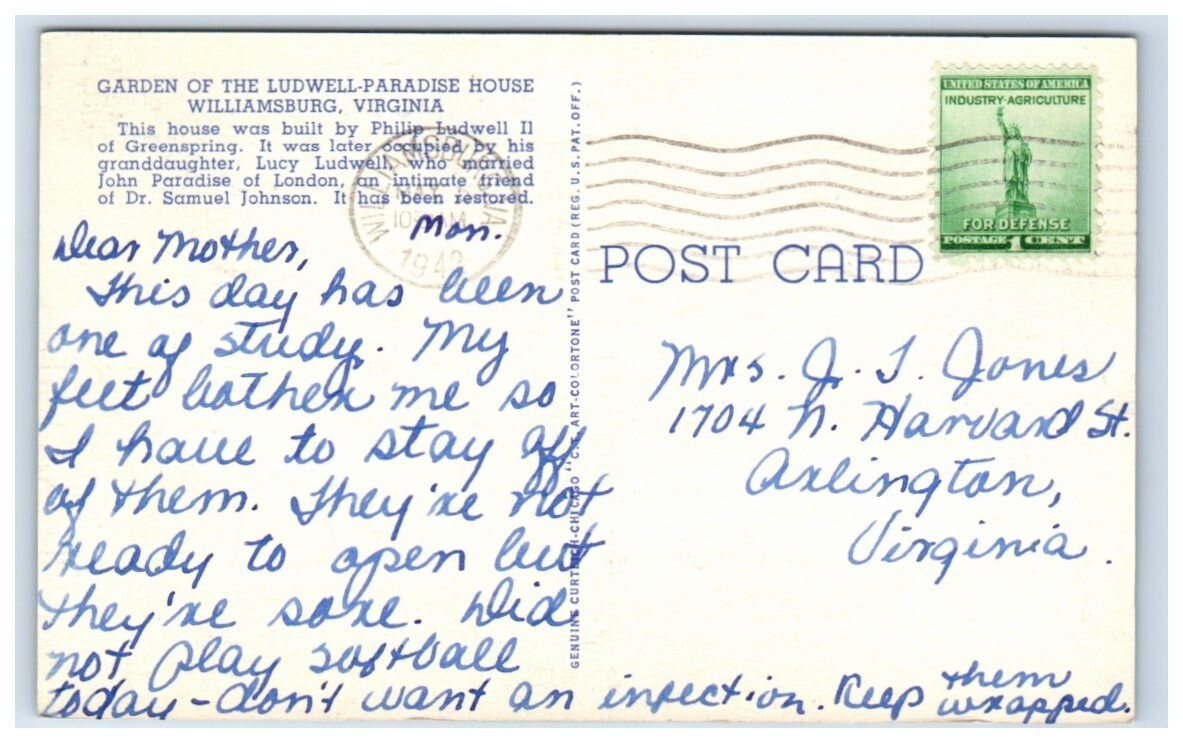 GARDEN OF THE LUDWELL-PARADISE HOUSE
WILLIAMSBURG, VIRGINIA
This house was built by Philip Ludwell II
of Greenspring. It was later occupied by his
granddaughter, Lucy Ludwell, who married
John Paradise of London, an intimate friend
of Dr. Samuel Johnson. It has been restored.
Mon.
Dear Mother,
This day has been
one of study. My
feet bother me so
I have to stay off
of them. They're not
ready to open but
they're sore. Did
not play softball
today - don't want an infection. Keep them
wrapped.
GENUINE CURTEICH-CHICAGO "C.T. ART-COLORTONE" POST CARD (REG. U.S. PAT. OFF.)
WILLIAMSBURG
1942
UNITED STATES OF AMERICA
INDUSTRY·AGRICULTURE
FOR DEFENSE
POSTAGE 1 CENT
POST CARD
Mrs. J. T. Jones
1704 N. Harvard St.
Arlington,
Virginia.